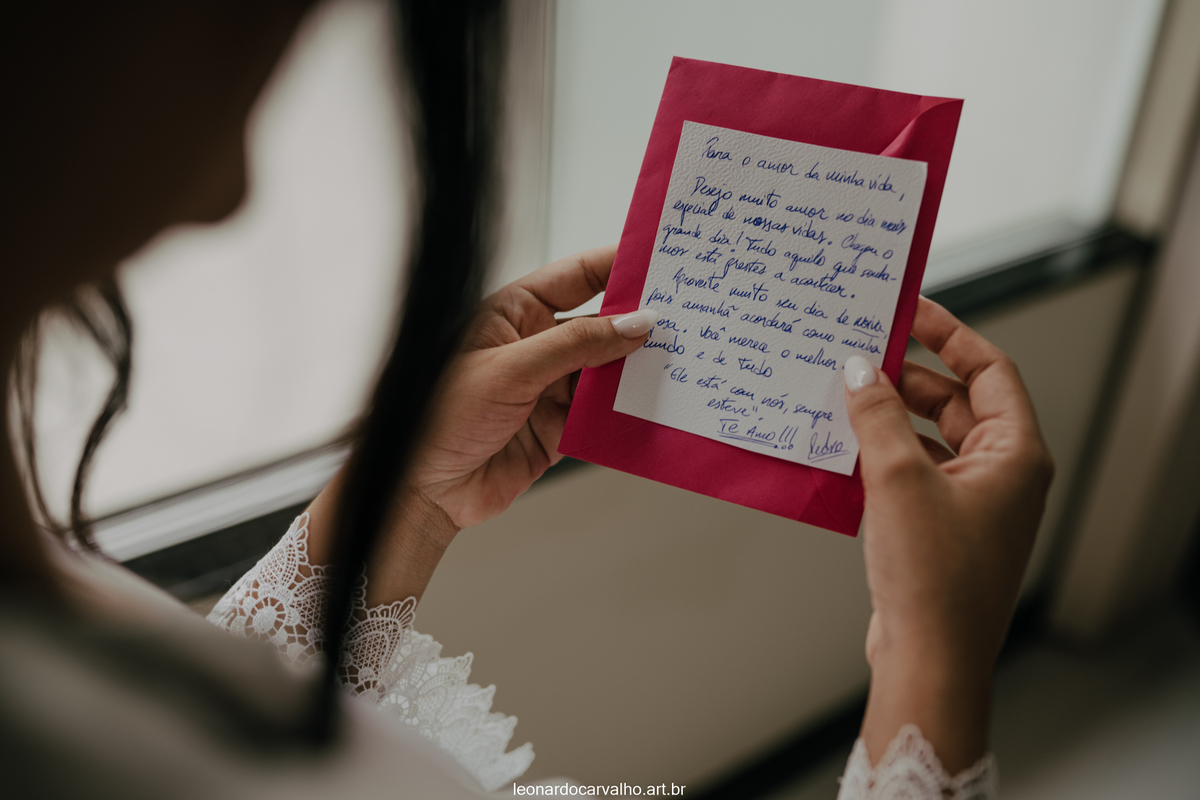 Para o amor da minha vida,
Desejo muito amor no dia mais
especial de nossas vidas. Chegou o
grande dia! Tudo aquilo que sonha-
mos está prestes a acontecer.
Aproveite muito seu dia de noiva,
pois amanhã acordará como minha
osa. Você merece o melhor
undo e de tudo
"Ele está com nós, sempre
esteve"
Te Amo!!! Pedro
leonardocarvalho.art.br